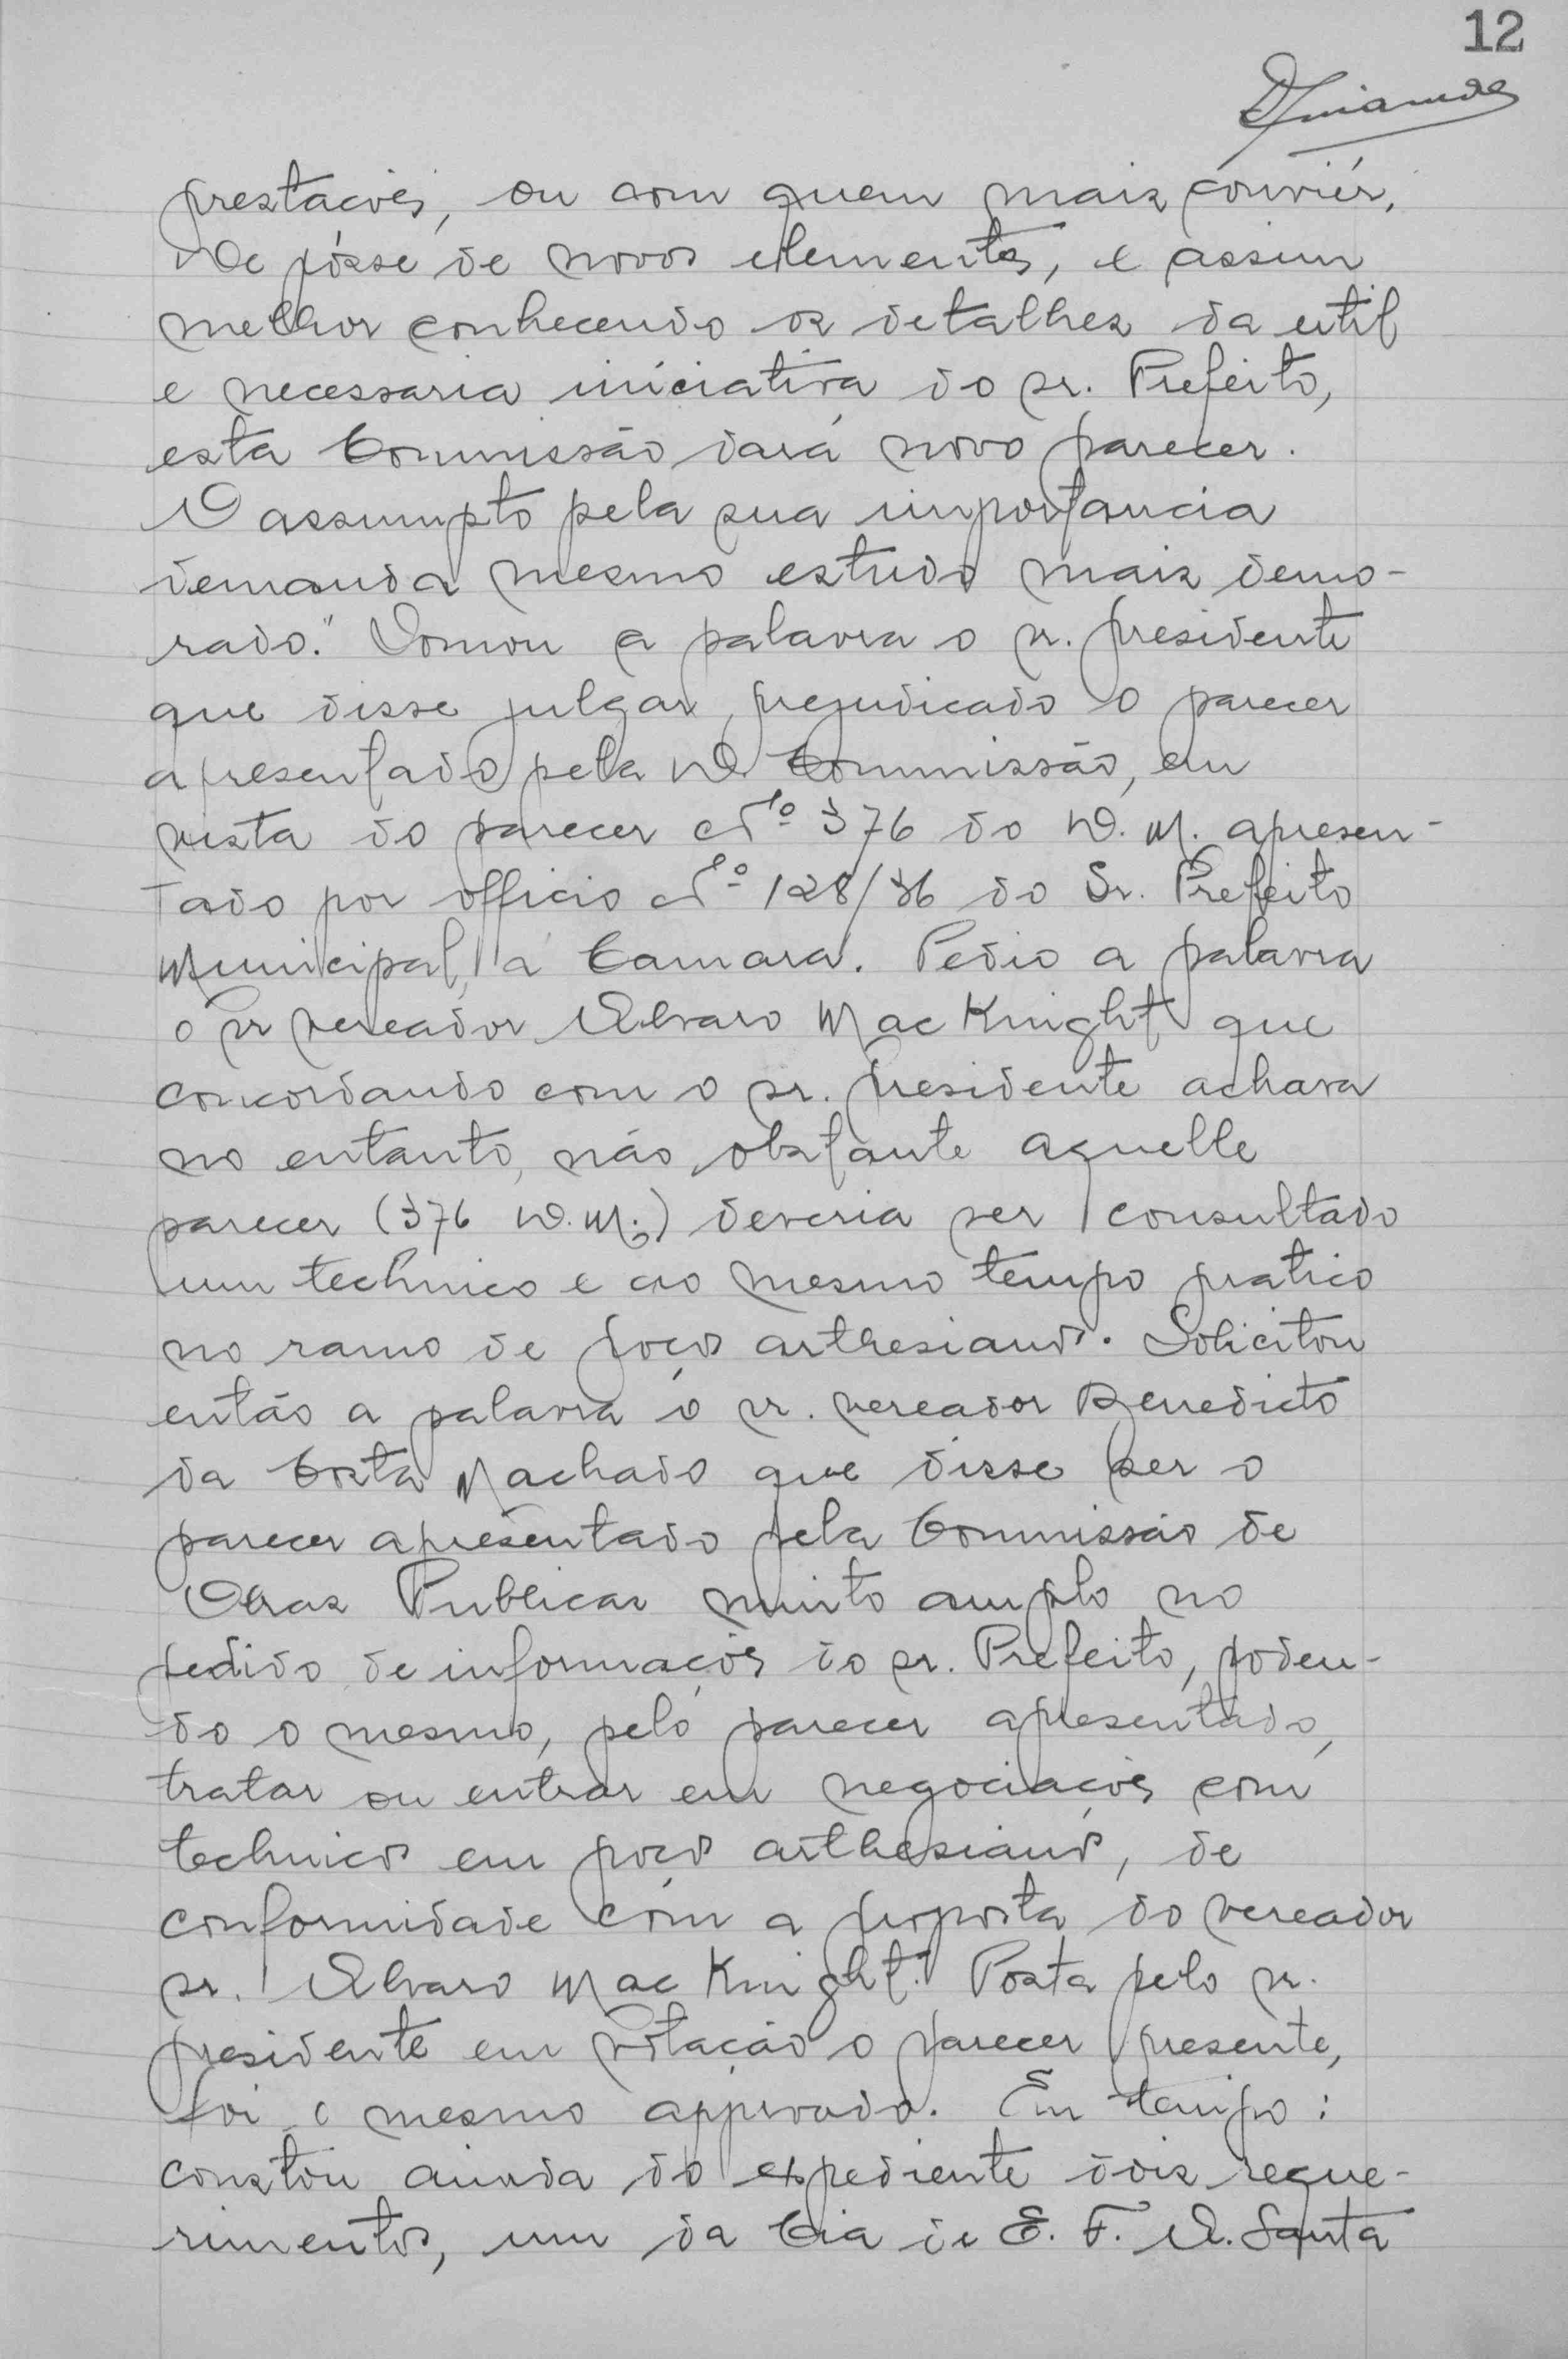 12
prestações, ou com quem mais convier.
De pósse de novos elementos, e assim
melhor conhecendo os detalhes da util
e necessaria iniciativa do sr. Prefeito,
esta Commissão dará novo parecer.
O assumpto pela sua importancia
demanda mesmo estudo mais demo-
rado." Tomou a palavra o sr. presidente
que disse julgar prejudicado o parecer
apresentado pela D Commissão, em
vista do parecer Nº 376 do D. M. apresen-
tado por officio Nº 128/36 do Sr. Prefeito
Municipal, á Camara. Pedio a palavra
o sr vereador Alvaro Mac Knight que
concordando com o sr. presidente achava
no entanto, não obstante aquelle
parecer (376 D. M.) deveria ser consultado
um technico e ao mesmo tempo pratico
no ramo de poços arthesianos. Solicitou
então a palavra o sr. vereador Benedicto
da Costa Machado que disse ser o
parecer apresentado pela Commissão de
Obras Publicas muito amplo no
pedido de informações do sr. Prefeito, poden-
do o mesmo, pelo parecer apresentado,
tratar ou entrar em negociações com
technicos em poços arthesianos, de
conformidade com a proposta do vereador
sr. Alvaro Mac Knight. Posta pelo sr.
presidente em votação o parecer presente,
foi o mesmo approvado. Em tempo:
constou ainda do expediente dois reque-
rimentos, um da Cia de E. F. A. Santa